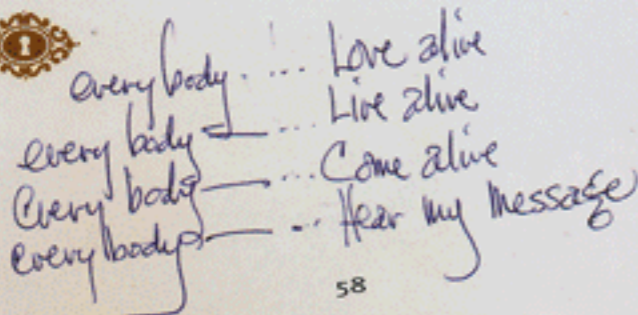 every body. ... Love alive
every body — ... Live alive
Every body — ... Come alive
every body — ... Hear my message
58